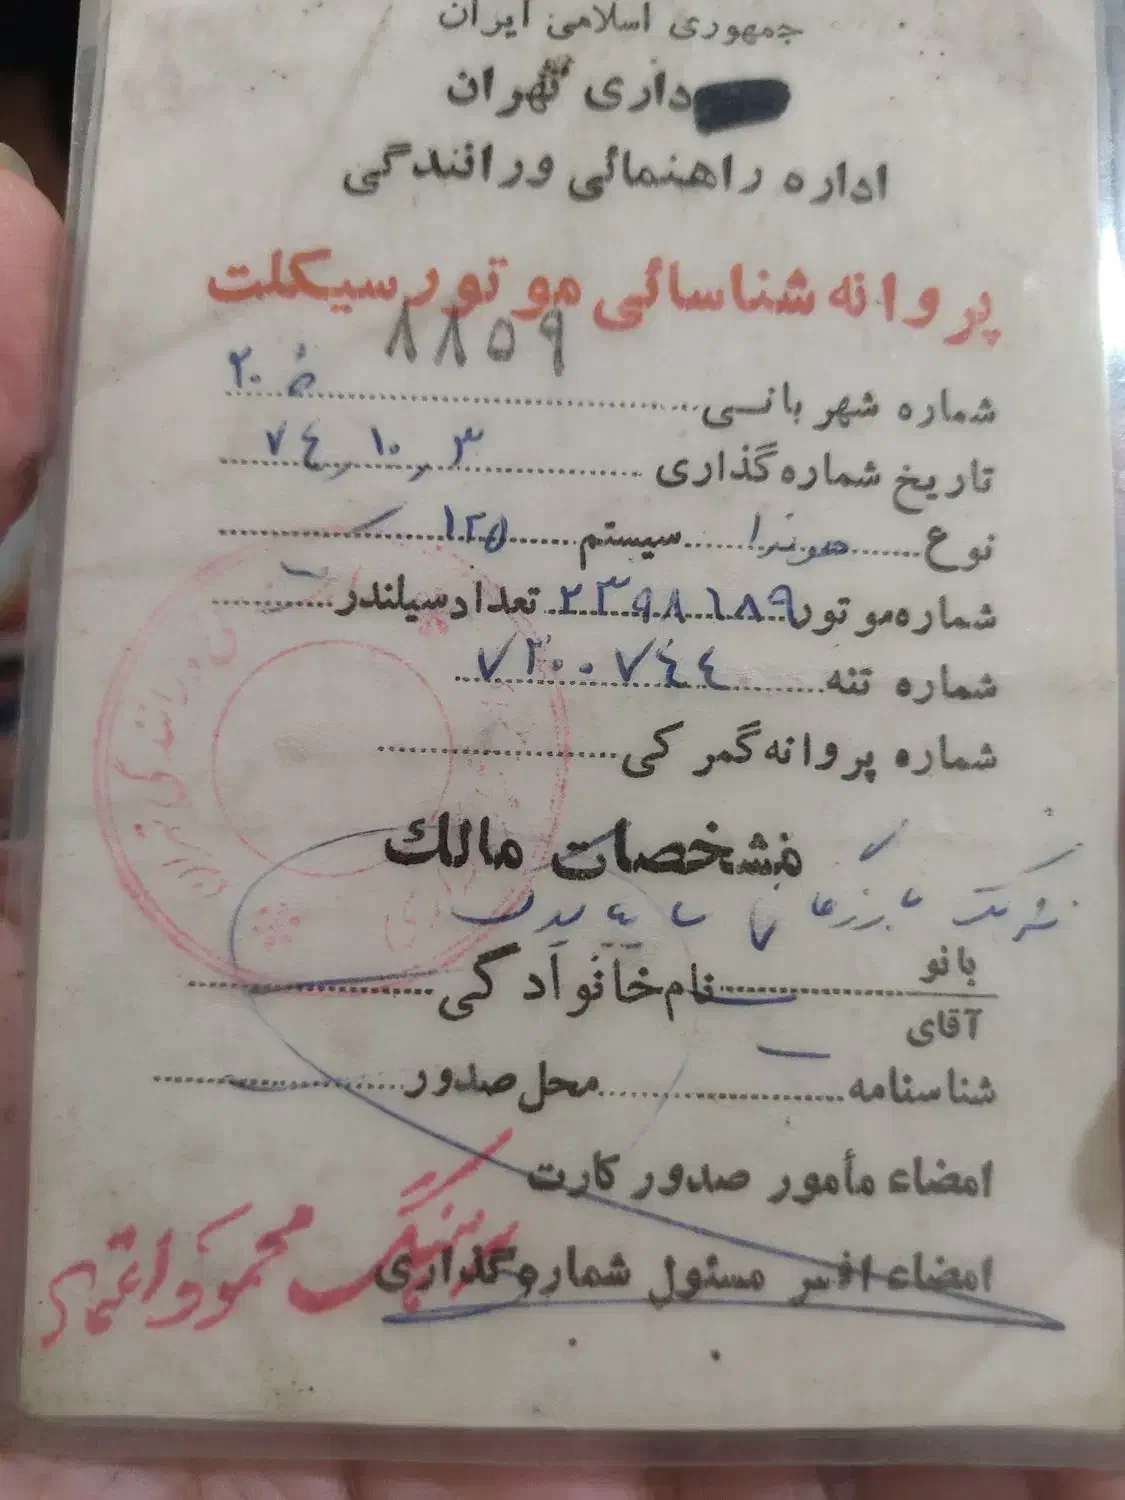 جمهوری اسلامی ایران
داری تهران
اداره راهنمائی ورانندگی
پروانه شناسائی موتورسیکلت
۸۸۵۹
شماره شهربانی ۲۰
تاریخ شماره گذاری ۳ ر ۱۰ ر ۷۴
نوع هوندا سیستم ۱۲۵
شماره موتور ۲۳۹۸۱۸۹ تعداد سیلندر
شماره تنه ۷۲۰۰۷۴۴
شماره پروانه گمرکی
مشخصات مالک
شرکت
بانو
آقای
نام خانوادگی
شناسنامه محل صدور
امضاء مأمور صدور کارت
امضاء افسر مسئول شماره گذاری
سرهنگ محمود